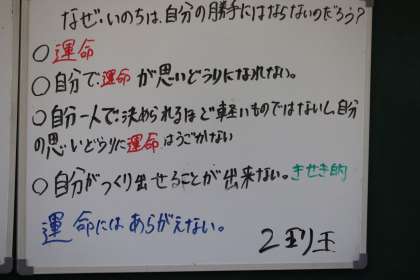 なぜ、いのちは、自分の勝手にはならないのだろう？
○運命
○自分で運命が思いどうりになれない。
○自分一人で決められるほど軽いものではないし、自分
の思いどうりに運命はうごかない
○自分がつくり出せることが出来ない。きせき的
運命にはあらがえない。